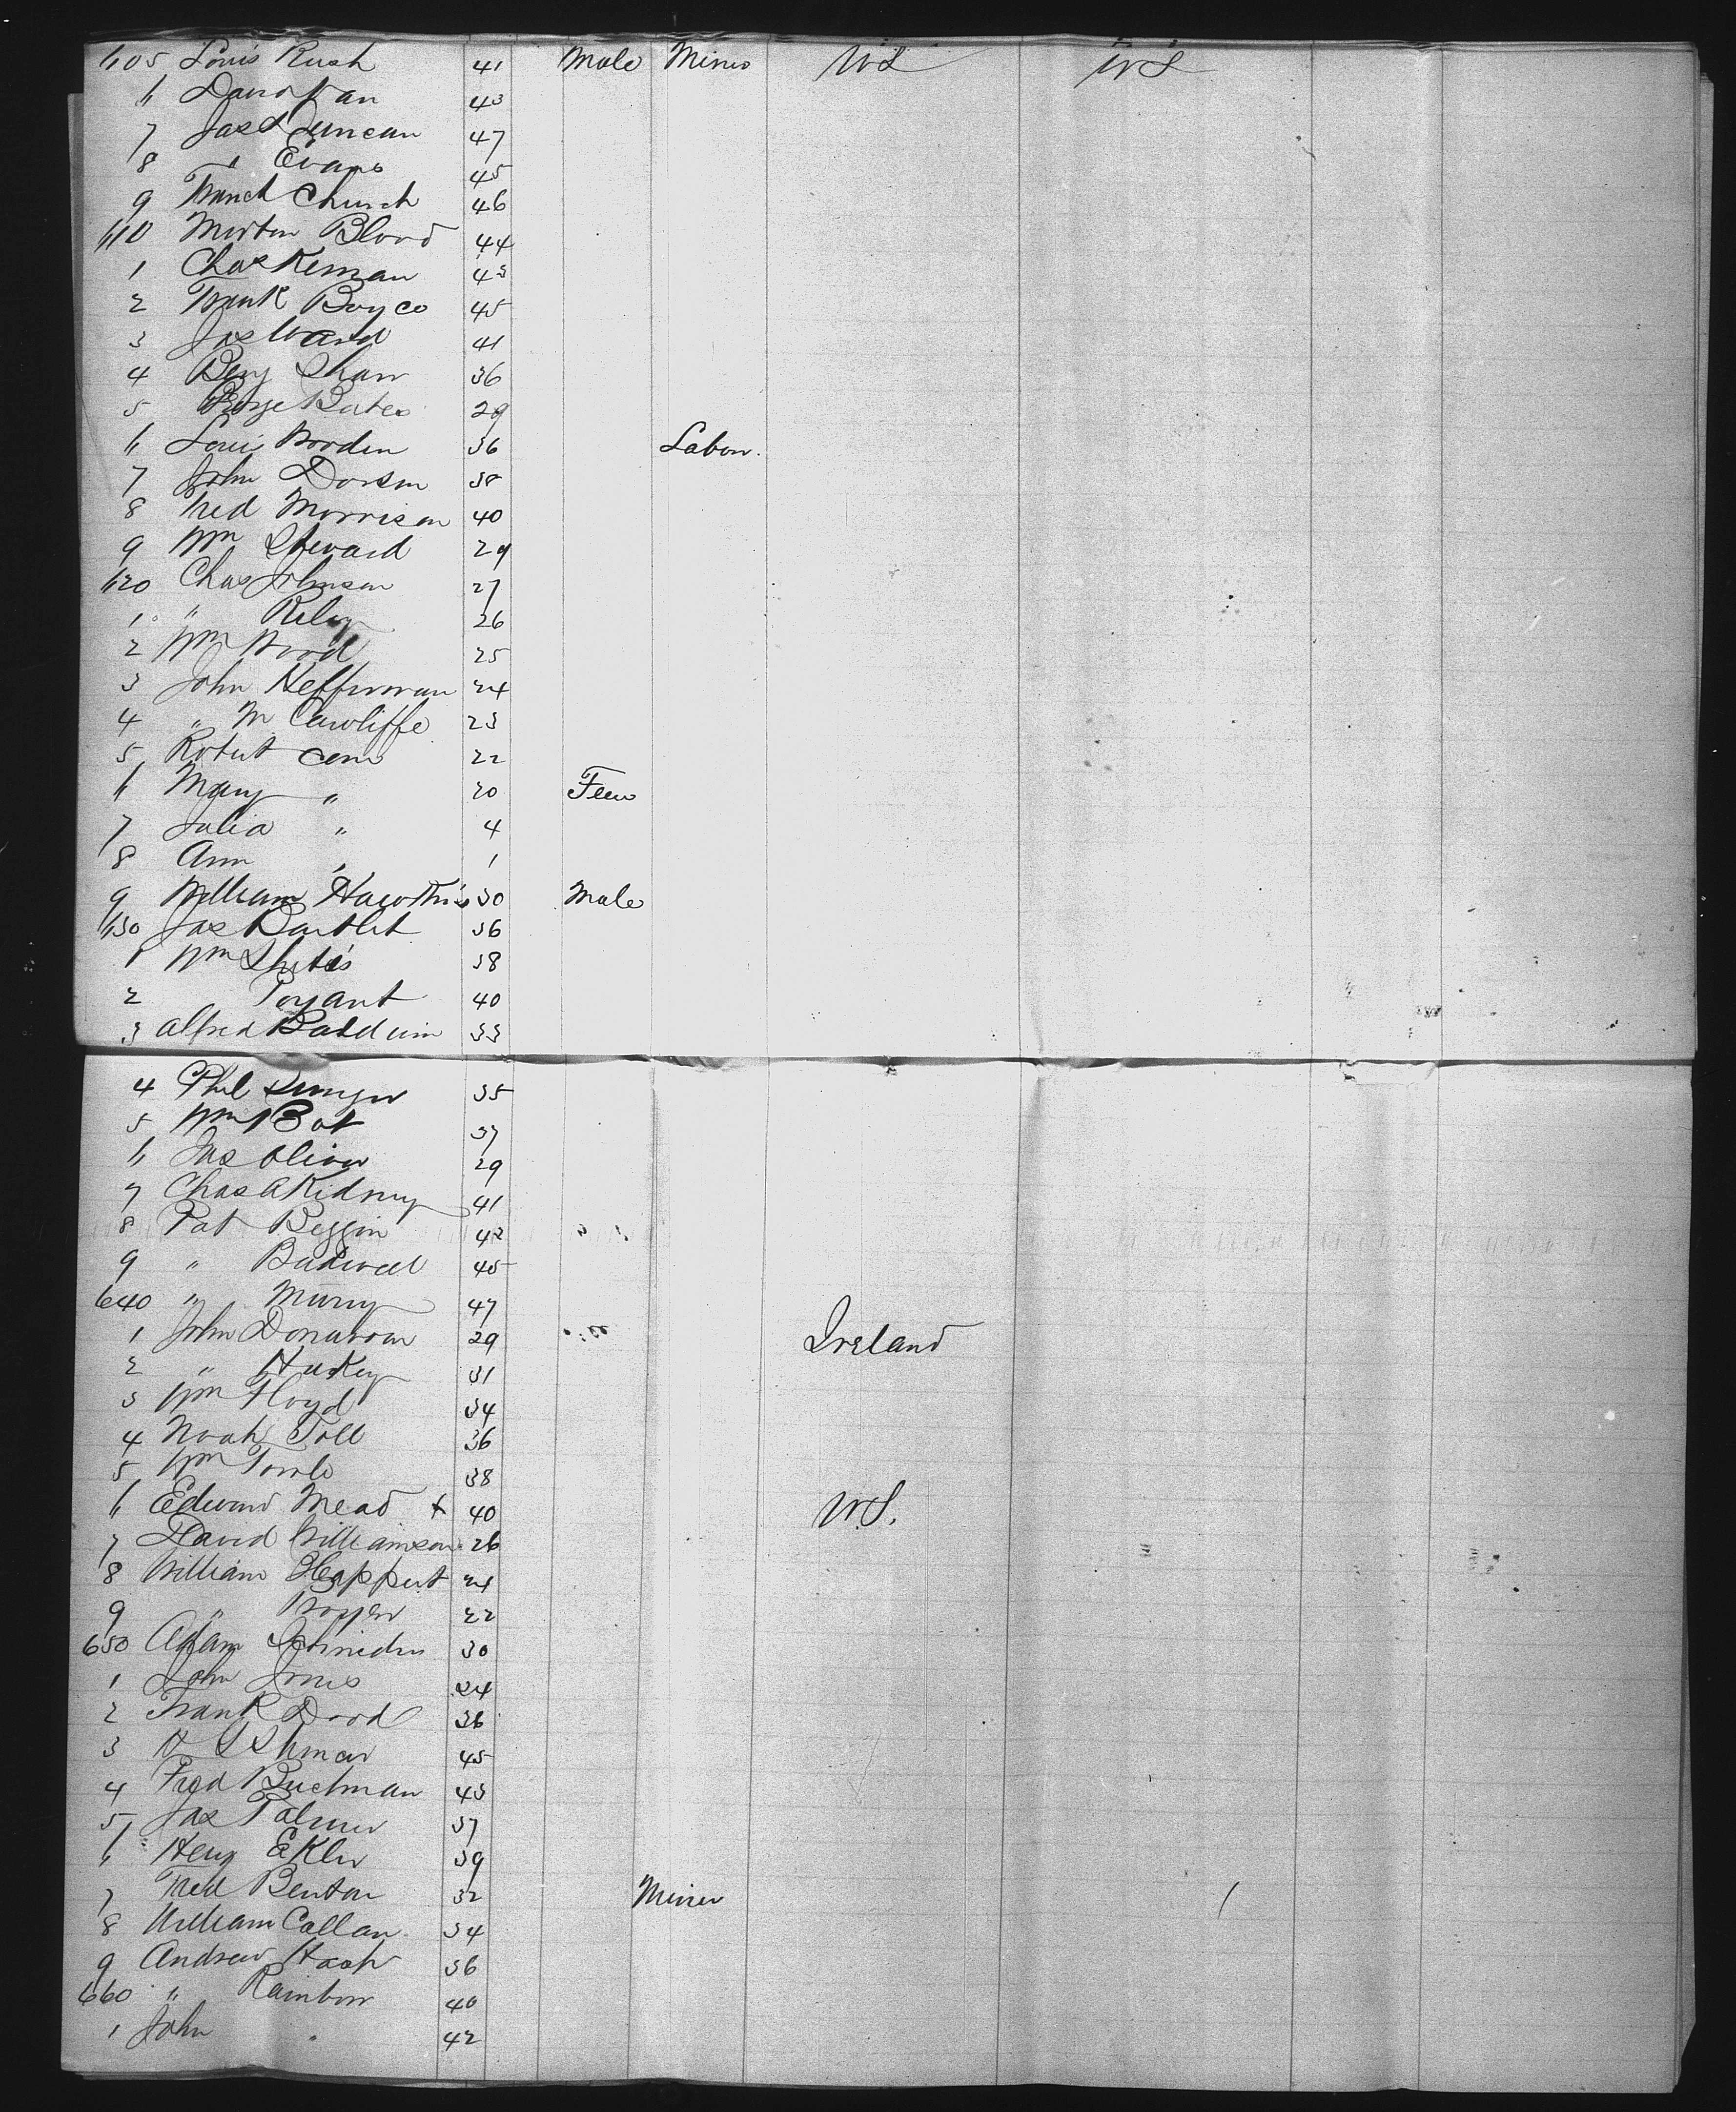 605 Louis Rush 41 Male Miner US US
6 David 43
7 Jas Duncan 47
8 " Evans 45
9 Frank Church 46
610 Morton Blood 44
1 Chas Kernan 43
2 Frank Boyce 45
3 Jas Ward 41
4 Benj Shaw 36
5 George Bates 29
6 Louis Borden 36 Labor.
7 John Dorson 38
8 Fred Morrison 40
9 Wm Steward 29
620 Chas Johnson 27
1 " Riley 26
2 Wm Wood 25
3 John Heffernan 24
4 " 23
5 Robert 22
6 Mary " 20 Fem
7 Julia " 4
8 Ann " 1
9 William 30 Male
630 Jas Bartlet 36
1 Wm 38
2 40
3 Alfred Baldwin 33
4 Phil 35
5 Wm Bot 37
6 Jas Oliver 29
7 Chas A Kidney 41
8 Pat Beggin 42
9 " Badwell 45
640 " Murry 47
1 John Donavan 29 Ireland
2 " 31
3 Wm Floyd 34
4 Noah Toll 36
5 Wm Towle 38
6 Edward Mead x 40 U.S.
7 David Williamson 26
8 William 24
9 " 22
650 Adam Schnider 30
1 John Jones 24
2 Frank Dood 36
3 H 45
4 Fred Buchman 43
5 Jas Palmer 37
6 Henry Ekler 39
7 Fred Benton 32 Miner
8 William Callan 34
9 Andrew 36
660 " Rainbow 40
1 John " 42